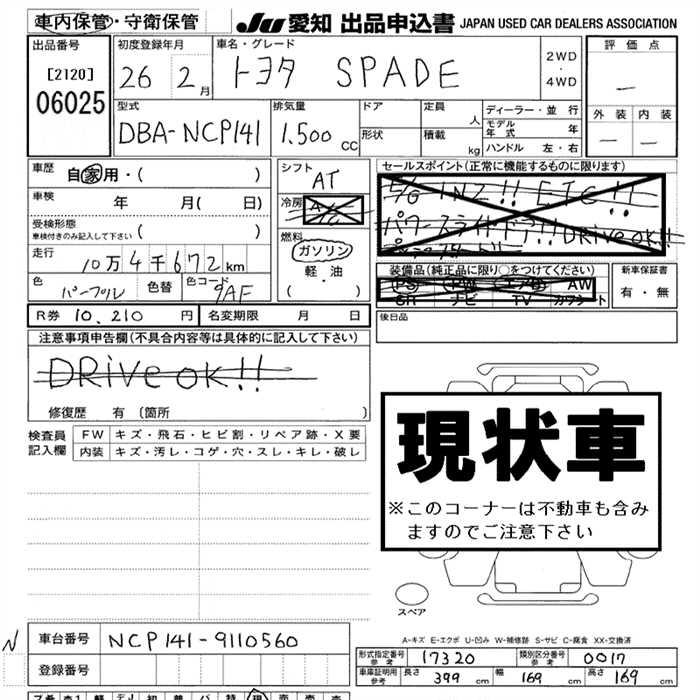 車内保管・守衛保管 JU 愛知 出品申込書 JAPAN USED CAR DEALERS ASSOCIATION
出品番号 初度登録年月 車名・グレード 評価点
[2120]
06025
26年 2月 トヨタ SPADE
2WD
・
4WD
—
型式 排気量 ドア 定員 ディーラー・並行 外装 内装
DBA-NCP141 1.500 CC 人 モデル年式 年
形状 積載 kg ハンドル 左・右 — —
車歴 自家用・( ) シフト AT セールスポイント(正常に機能するものに限ります)
車検 年 月( 日) 冷房 A/C
E/G 1NZ!! ETC!!
受検形態
車検付きのみ記入して下さい ( )
パワースライドドア!! DRive OK!!
走行 10万4千672km 燃料 ガソリン・軽油・( )
装備品(純正品に限り○をつけてください) 新車保証書
PS PW エアB AW
SR ナビ TV カワシート
有・無
色 パープル 色替 色コード 9AF
後日品
R券 10,210円 名変期限 月 日
注意事項申告欄(不具合内容等は具体的に記入して下さい)
DRive OK!!
修復歴 有 (箇所 )
現状車
※このコーナーは不動車も含み
ますのでご注意下さい
検査員記入欄 FW キズ・飛石・ヒビ割・リペア跡・X要
内装 キズ・汚レ・コゲ・穴・スレ・キレ・破レ
スペア
A-キズ E-エクボ U-凹み W-補修跡 S-サビ C-腐食 XX-交換済
N 車台番号 NCP141-9110560
登録番号
形式指定番号 参考 17320 類別区分番号 参考 0017
車庫証明用 参考 長さ 399 cm 幅 169 cm 高さ 169 cm